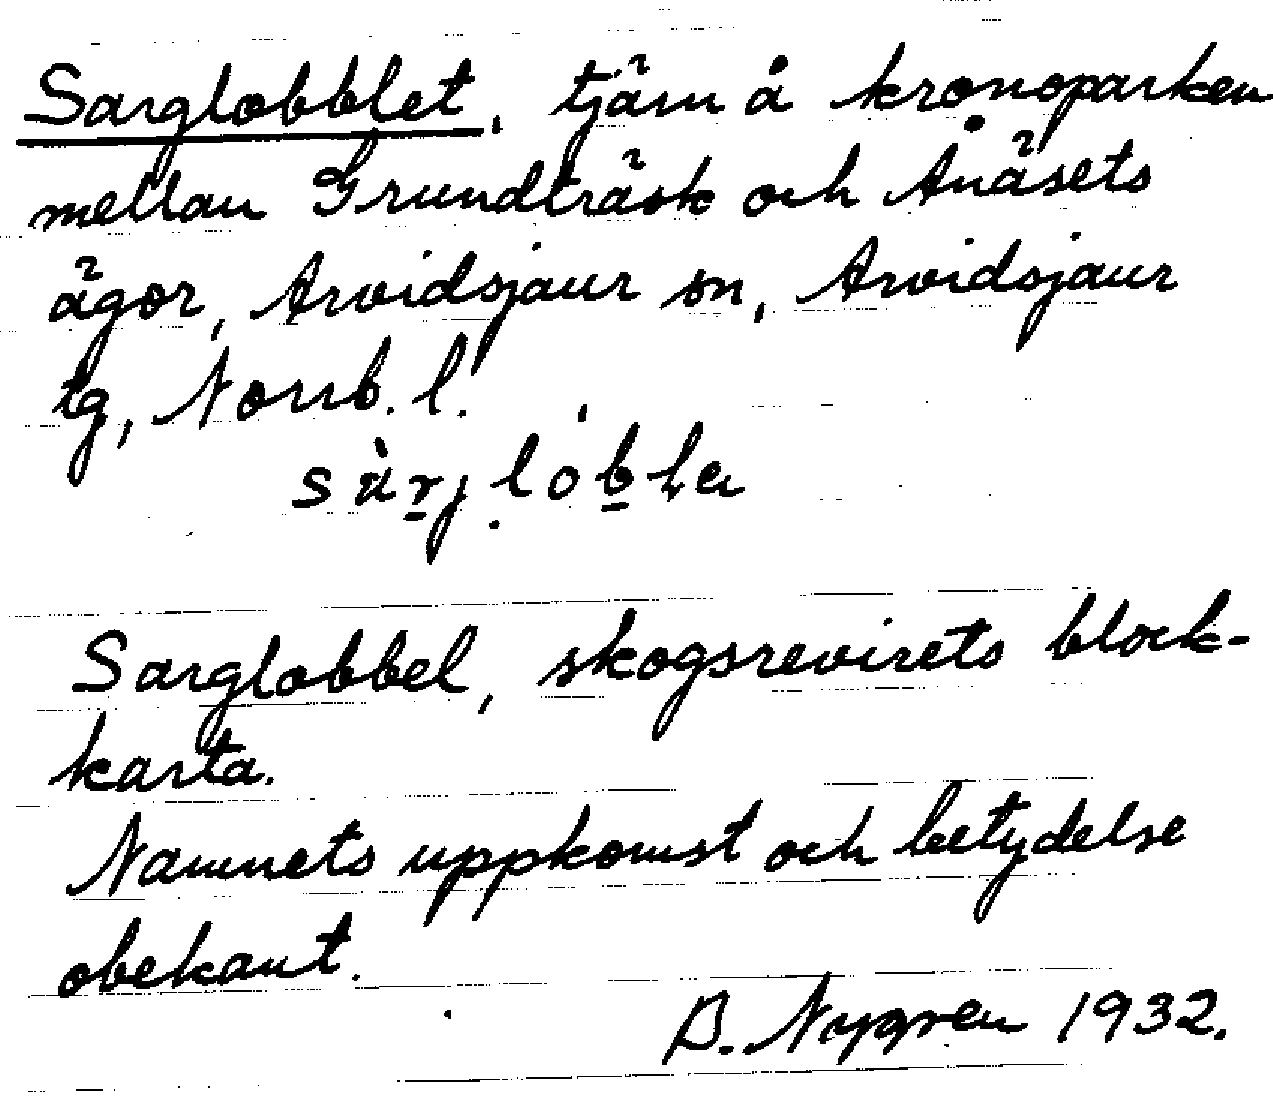 Sarglobblet, tjärn å kronoparken
mellan Grundträsk och Ånäsets
ägor, Arvidsjaur sn, Arvidsjaur
tg, Norrb. l.
Sarglobbel, skogsrevirets block-
karta.
Namnets uppkomst och betydelse
obekant.
B. Nygren 1932.